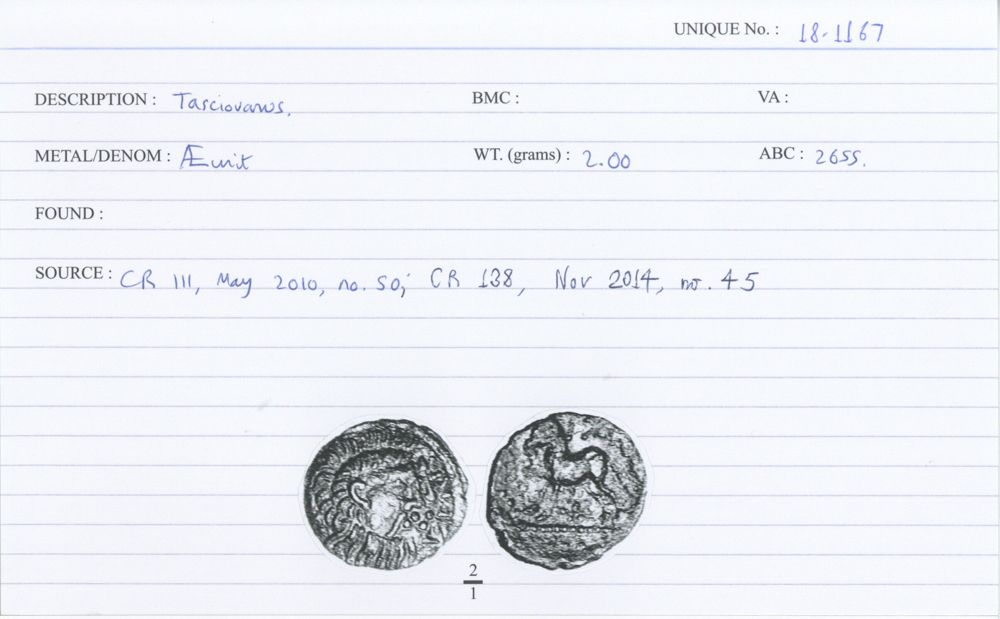 UNIQUE No. : 18-1167
DESCRIPTION : Tasciovanus. BMC : VA :
METAL/DENOM : Æ unit WT. (grams) : 2.00 ABC : 2655.
FOUND :
SOURCE : CR 111, May 2010, no. 50; CR 138, Nov 2014, no. 45
2
1